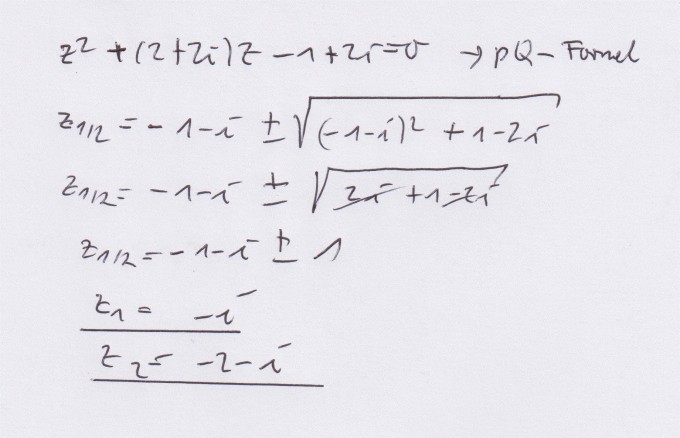 z² + (2+2i)z - 1 + 2i = 0 → pQ-Formel
z1/2 = - 1 - i ± √((-1-i)² + 1 - 2i)
z1/2 = - 1 - i ± √(2i + 1 - 2i)
z1/2 = - 1 - i ± 1
z1 = - i
z2 = - 2 - i